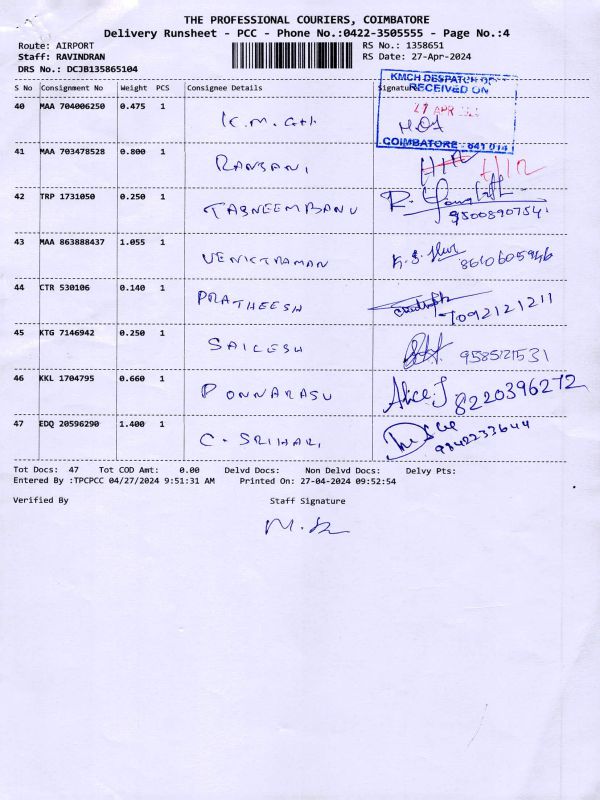 THE PROFESSIONAL COURIERS, COIMBATORE
Delivery Runsheet - PCC - Phone No.:0422-3505555 - Page No.:4
Route: AIRPORT RS No.: 1358651
Staff: RAVINDRAN RS Date: 27-Apr-2024
DRS No.: DCJB135865104
KMCH DESPATCH
RECEIVED ON
S No Consignment No Weight PCS Consignee Details Signature
27 APR
COIMBATORE - 641 014
40 MAA 704006250 0.475 1 K.M.CH
41 MAA 703478528 0.800 1 RANJANI
42 TRP 1731050 0.250 1 TASNEEMBANU 9500890754
43 MAA 863888437 1.055 1 VENKTRAMAN 8610605946
44 CTR 530106 0.140 1 PRATHEESH 7092121211
45 KTG 7146942 0.250 1 SAILESH 9585121531
46 KKL 1704795 0.660 1 PONNARASU Alice.J 8220396272
47 EDQ 20596290 1.400 1 C. SRIHARI 9842233644
Tot Docs: 47 Tot COD Amt: 0.00 Delvd Docs: Non Delvd Docs: Delvy Pts:
Entered By :TPCPCC 04/27/2024 9:51:31 AM Printed On: 27-04-2024 09:52:54
Verified By Staff Signature